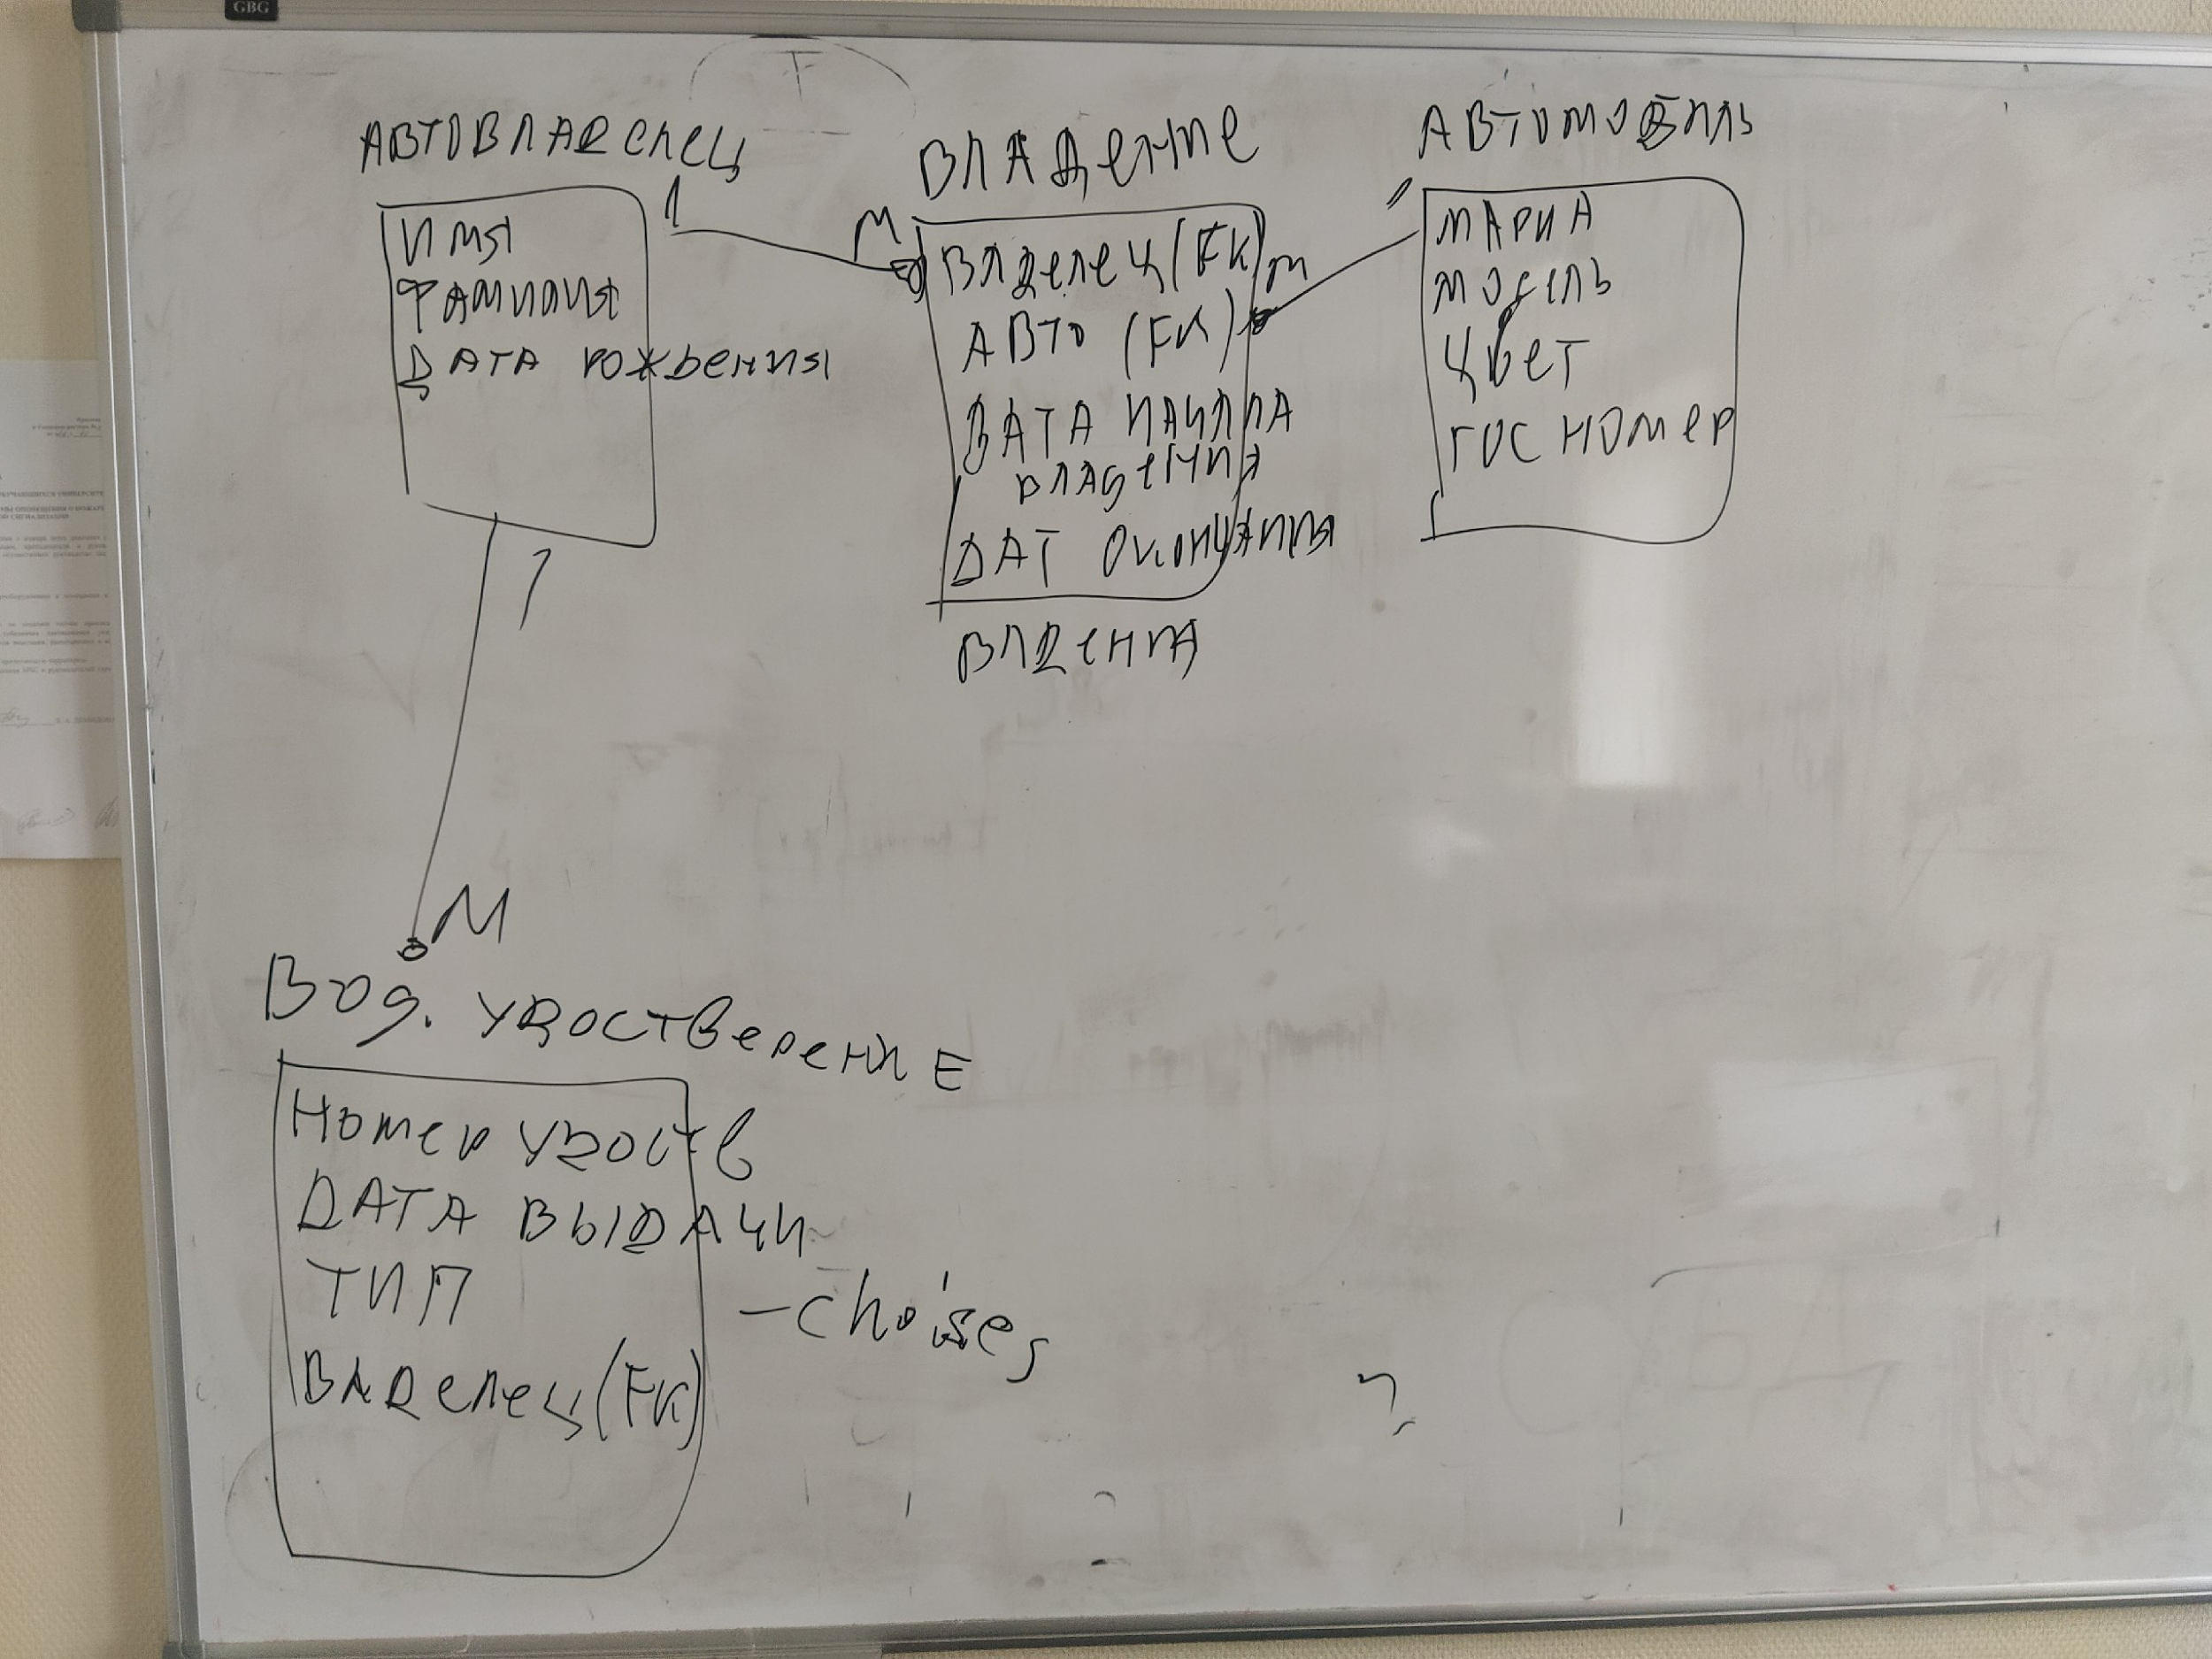 GBG
АВТОВЛАДЕЛЕЦ
1
ИМЯ
ФАМИЛИЯ
ДАТА РОЖДЕНИЯ
1
М
ВЛАДЕНИЕ
М
ВЛДЕЛЕЦ (FK)
m
АВТО (FK)
ДАТА НАЧАЛА
ВЛАДЕНИЯ
ДАТ ОКОНЧАНИЯ
ВЛДЕНИЯ
АВТОМОБИЛЬ
1
МАРКА
МОДЕЛЬ
ЦВЕТ
ГОС НОМЕР
Вод. УДОСТВЕРЕНИЕ
Номер УДОСТВ
ДАТА ВЫДАЧИ
ТИП
– choises
ВЛАДЕЛЕЦ (FK)